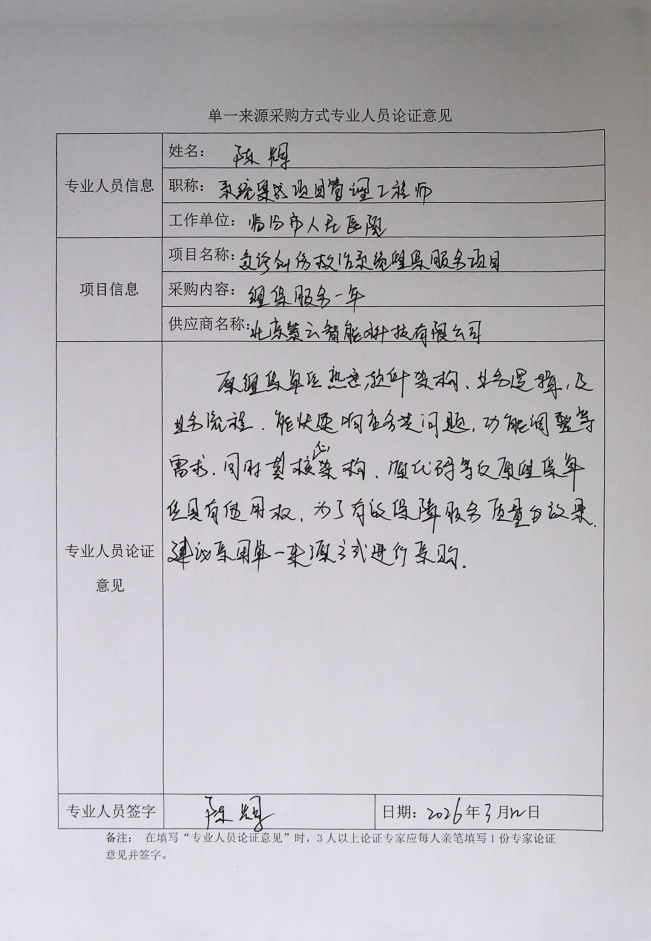 单一来源采购方式专业人员论证意见
专业人员信息
姓名：陈辉
职称：系统集成项目管理工程师
工作单位：临汾市人民医院
项目信息
项目名称：交评创伤救治系统维保服务项目
采购内容：维保服务一年
供应商名称：北京 云智能科技有限公司
专业人员论证意见
原维保单位熟悉软件架构、业务逻辑，及
业务流程、能快速响应各类问题，功能调整等
需求，同时其核心架构、源代码等仅原维保单
位具有使用权，为了有效保障服务质量与效果，
建议采用单一来源方式进行采购．
专业人员签字
陈辉
日期：2026年3月12日
备注： 在填写“专业人员论证意见”时，3人以上论证专家应每人亲笔填写1份专家论证
意见并签字。